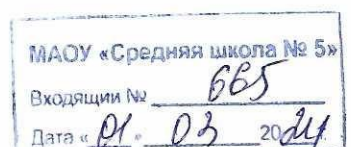 МАОУ «Средняя школа № 5»
Входящий № 665
Дата « 01 » 03 2024